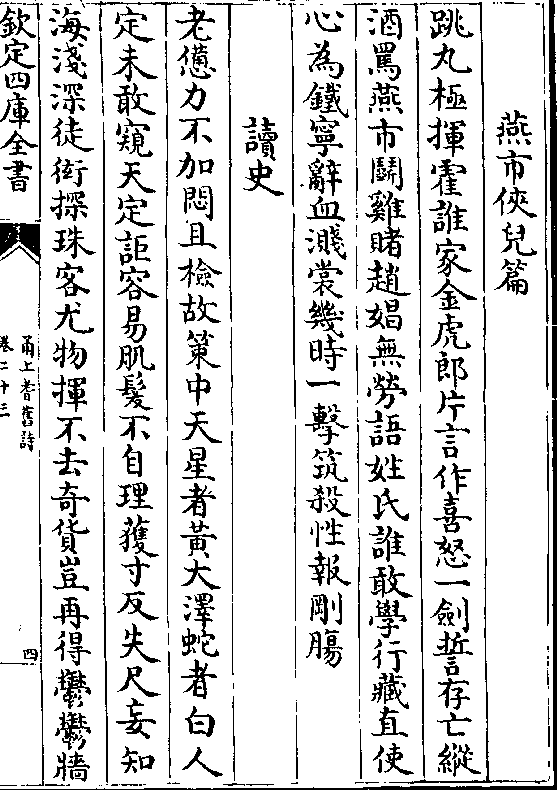 燕市俠兒篇
跳丸極揮霍誰家金虎郎片言作喜怒一劍誓存亡縱
酒罵燕市鬬雞賭趙娼無勞語姓氏誰敢學行藏直使
心為鐵寧辭血濺裳幾時一擊筑殺性報剛腸
讀史
老憊力不加悶且檢故策中天星者黃大澤蛇者白人
定未敢窺天定詎容易肌髮不自理獲寸反失尺妄知
海淺深徒衒探珠客尤物揮不去奇貨豈再得鬱鬱牆
欽定四庫全書
甬上耆舊詩
卷二十三
四